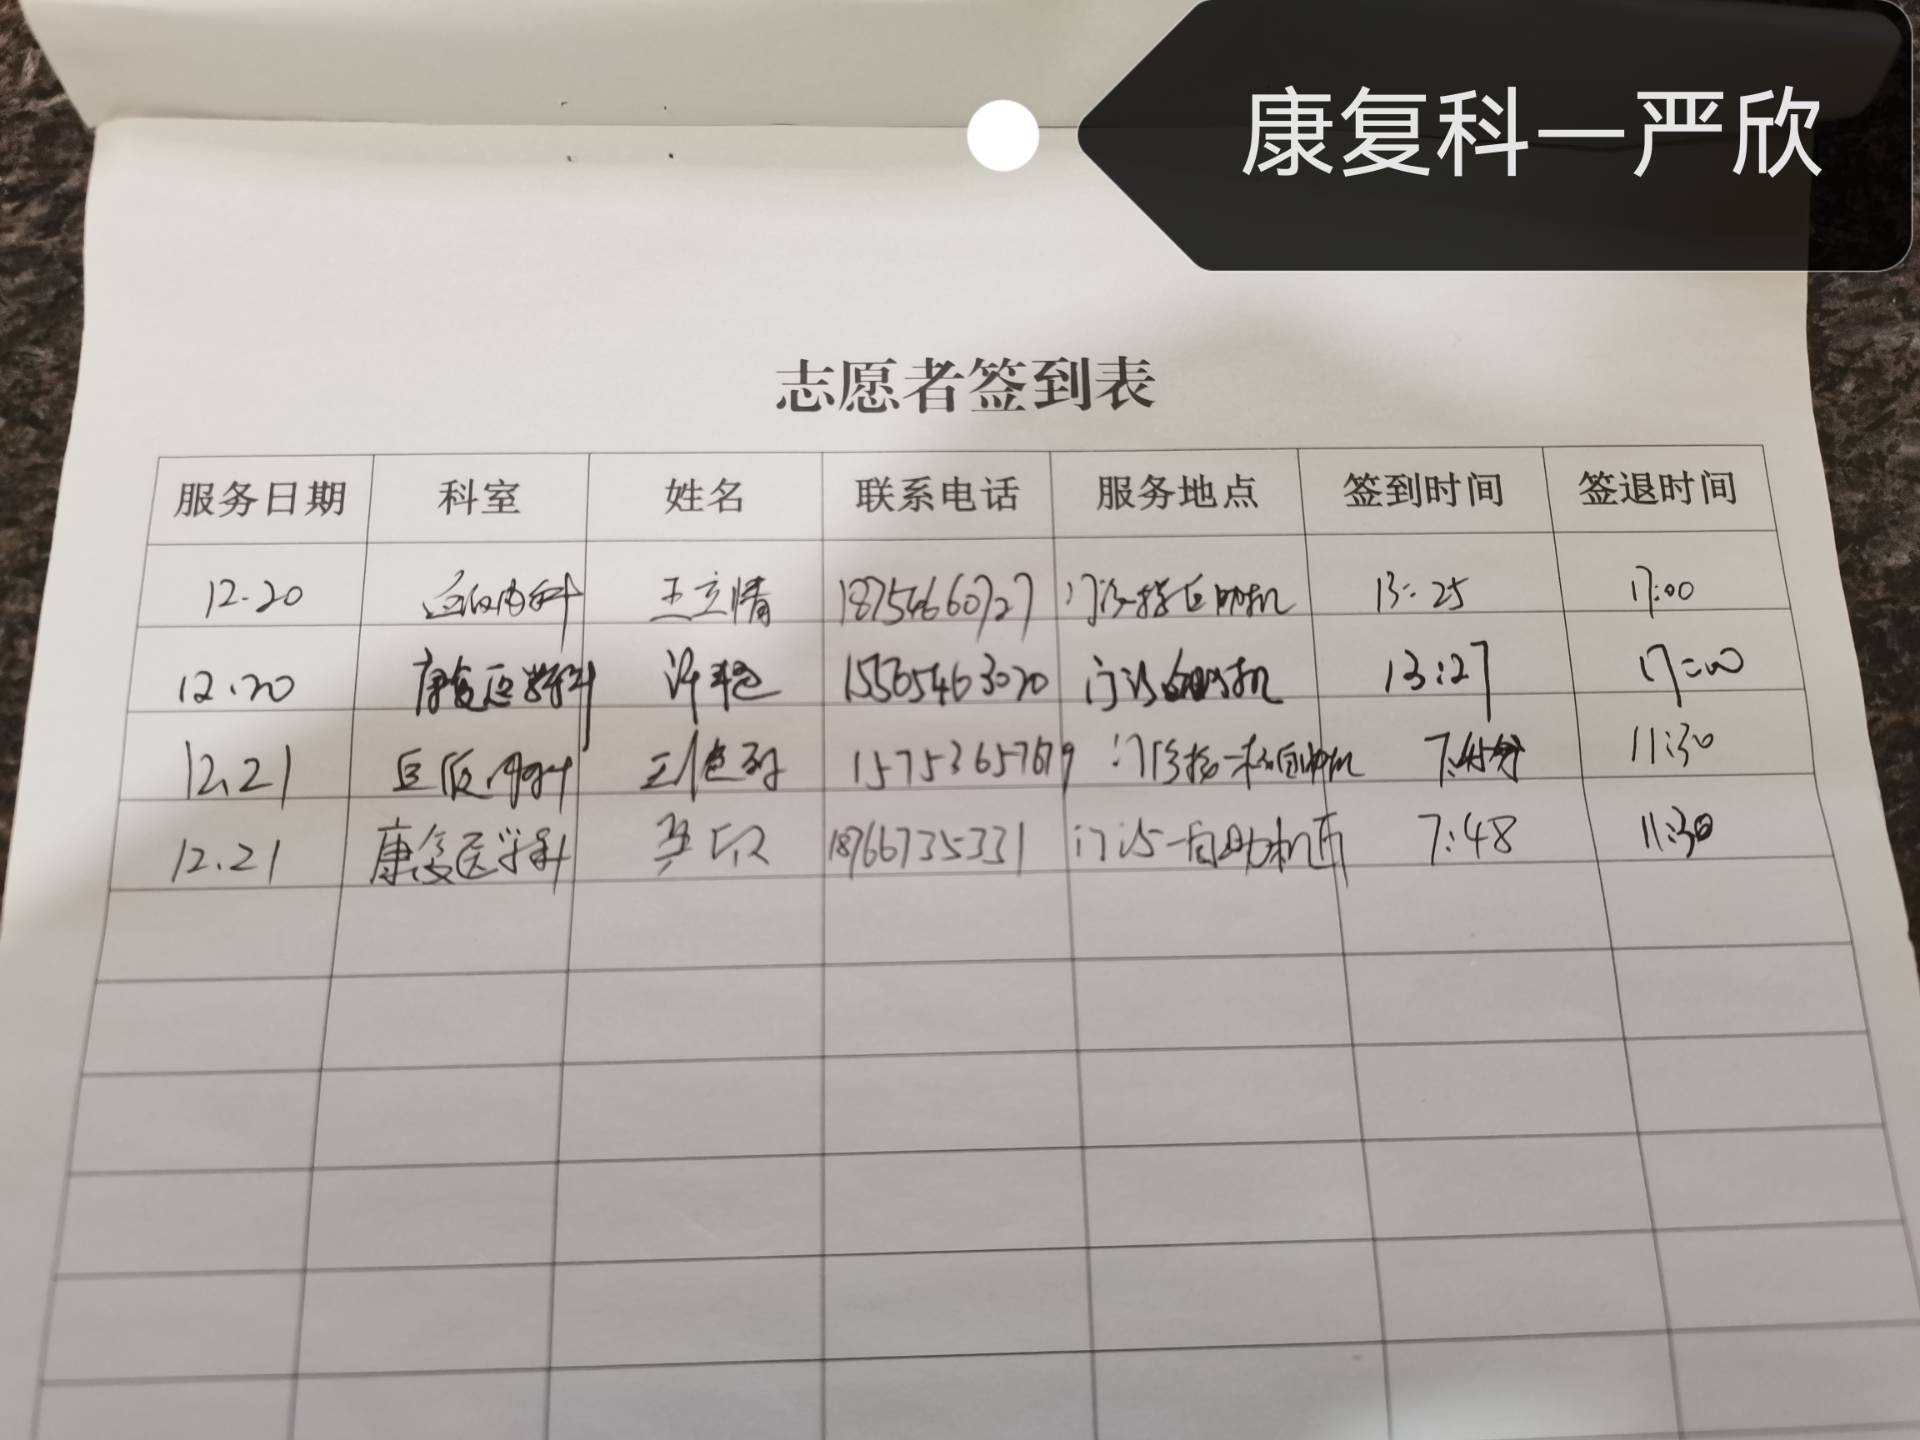 康复科—严欣
志愿者签到表
服务日期 科室 姓名 联系电话 服务地点 签到时间 签退时间
12.20 内科 王立情 18754660727 门诊 助机 13:25 17:00
12.20 康复医学科 许 15565463020 门诊自助机 13:27 17:00
12.21 王 门诊 自助机 7:45分 11:30
12.21 康复医学科 严欣 18766735331 门诊一自助机 7:48 11:30